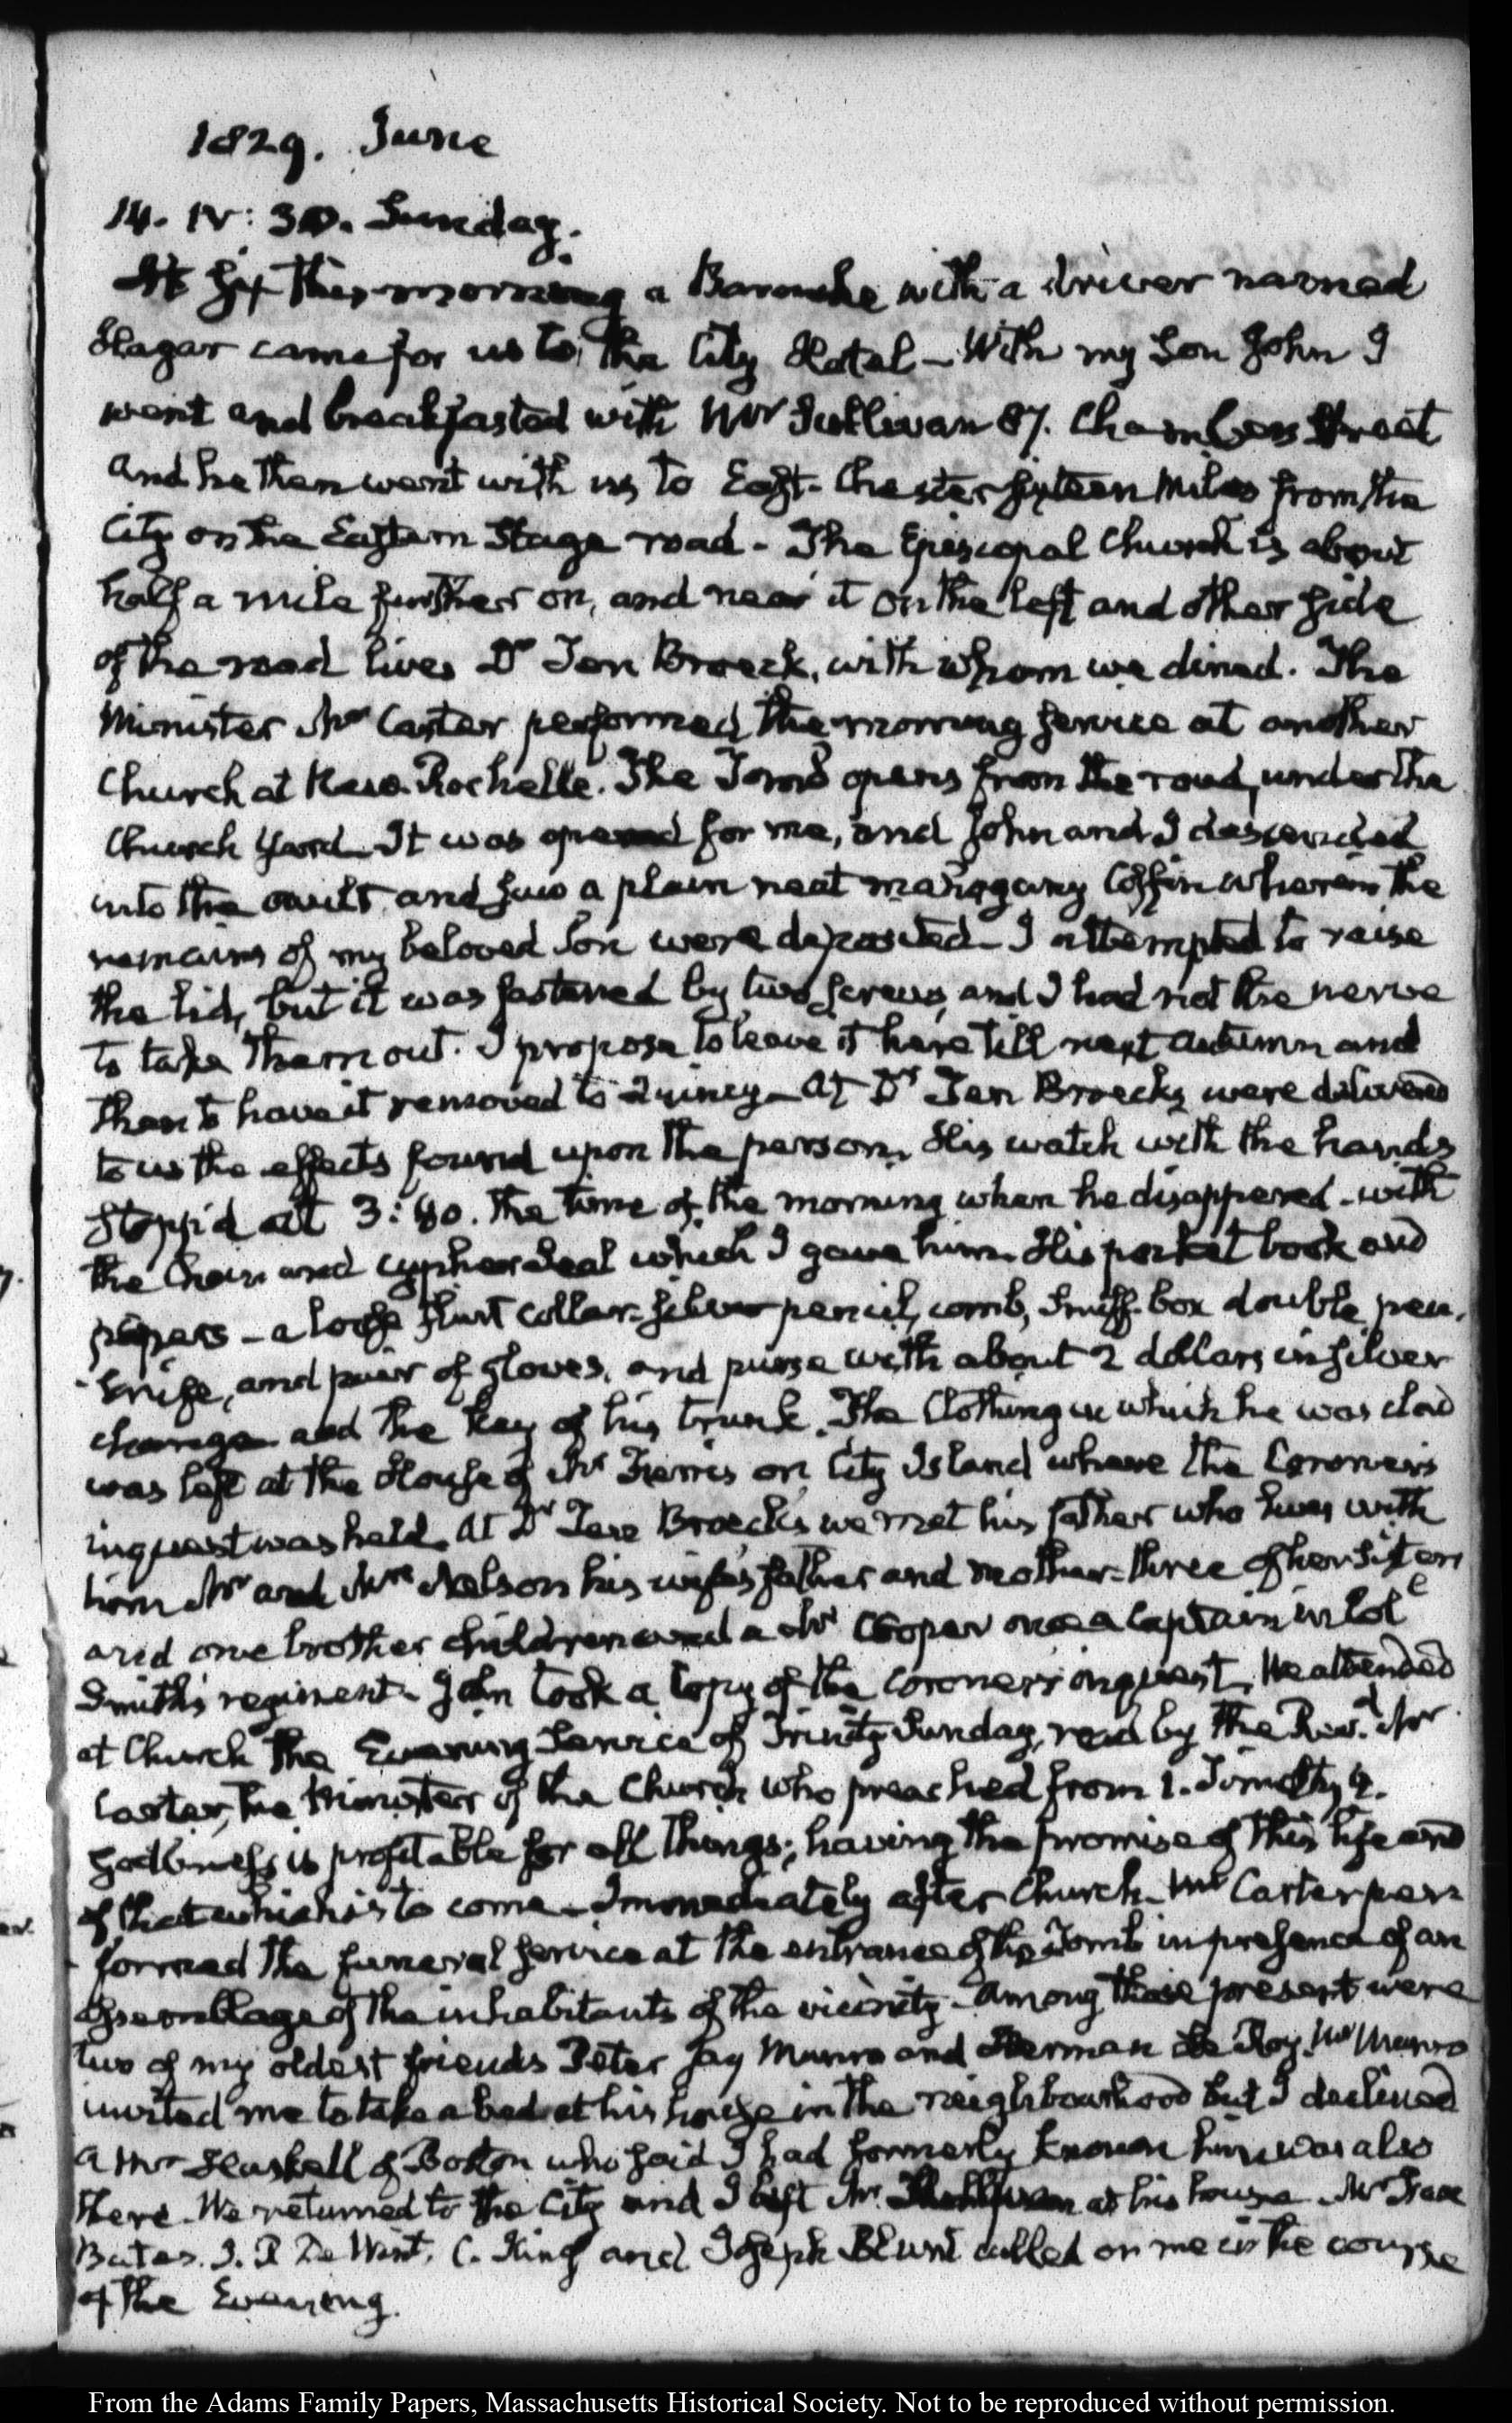 1829. June
14. IV: 30. Sunday.
At six this morning a Barouche with a driver named
Hagar came for us to the City Hotel – With my Son John I
went and breakfasted with Mr Sullivan 87. Chambers Street
and he then went with us to East-Chester sixteen Miles from the
City on the Eastern Stage road – The Episcopal Church is about
half a mile further on, and near it on the left and other side
of the road lives Dr Ten Broeck, with whom we dined. The
Minister Mr Carter performed the morning service at another
Church at New-Rochelle. The Tomb opens from the road, under the
Church Yard – It was opened for me, and John and I descended
into the vault and saw a plain neat mahogany Coffin wherein the
remains of my beloved Son were deposited – I attempted to raise
the lid, but it was fastened by two screws, and I had not the nerve
to take them out. I propose to leave it here till next autumn and
then to have it removed to Quincy – At Dr Ten Broeck's were delivered
to us the effects found upon the person. His watch with the hands
stopp'd at 3:40. the time of the morning when he disappeared – with
the Chain and cypher Seal which I gave him. His pocket book and
papers – a loose shirt collar – silver pencil, comb, snuff-box double, pen-
-knife, and pair of gloves, and purse with about 2 dollars in silver
change and the key of his trunk. The Clothing in which he was clad
was left at the House of Mr Ferris on City Island where the Coroner's
inquest was held. At Dr Ten Broeck's we met his father who lives with
him Mr and Mrs Nelson his wife's father and mother – three of her sisters
and one brother children and a Mr Cooper once a Captain in Col.e
Smith's regiment – John took a Copy of the Coroner's inquest. We attended
at Church the Evening Service of Trinity Sunday, read by the Rev.d Mr
Carter, the Minister of the Church who preached from 1. Timothy 4.
Godliness is profitable for all things; having the promise of this life and
of that which is to come – Immediately after Church – Mr Carter per-
-formed the funeral service at the entrance of the Tomb in presence of an
assemblage of the inhabitants of the vicinity – Among those present were
two of my oldest friends Peter Jay Munro and Herman Le Roy. Mr Munro
invited me to take a bed at his house in the neighbourhood but I declined
A Mr Haskell of Boston who said I had formerly known him was also
there – We returned to the City and I left Mr Sullivan at his house – Mr Isaac
Bates. J. P. De Wint. C. King and Joseph Blunt called on me in the course
of the Evening.
From the Adams Family Papers, Massachusetts Historical Society. Not to be reproduced without permission.